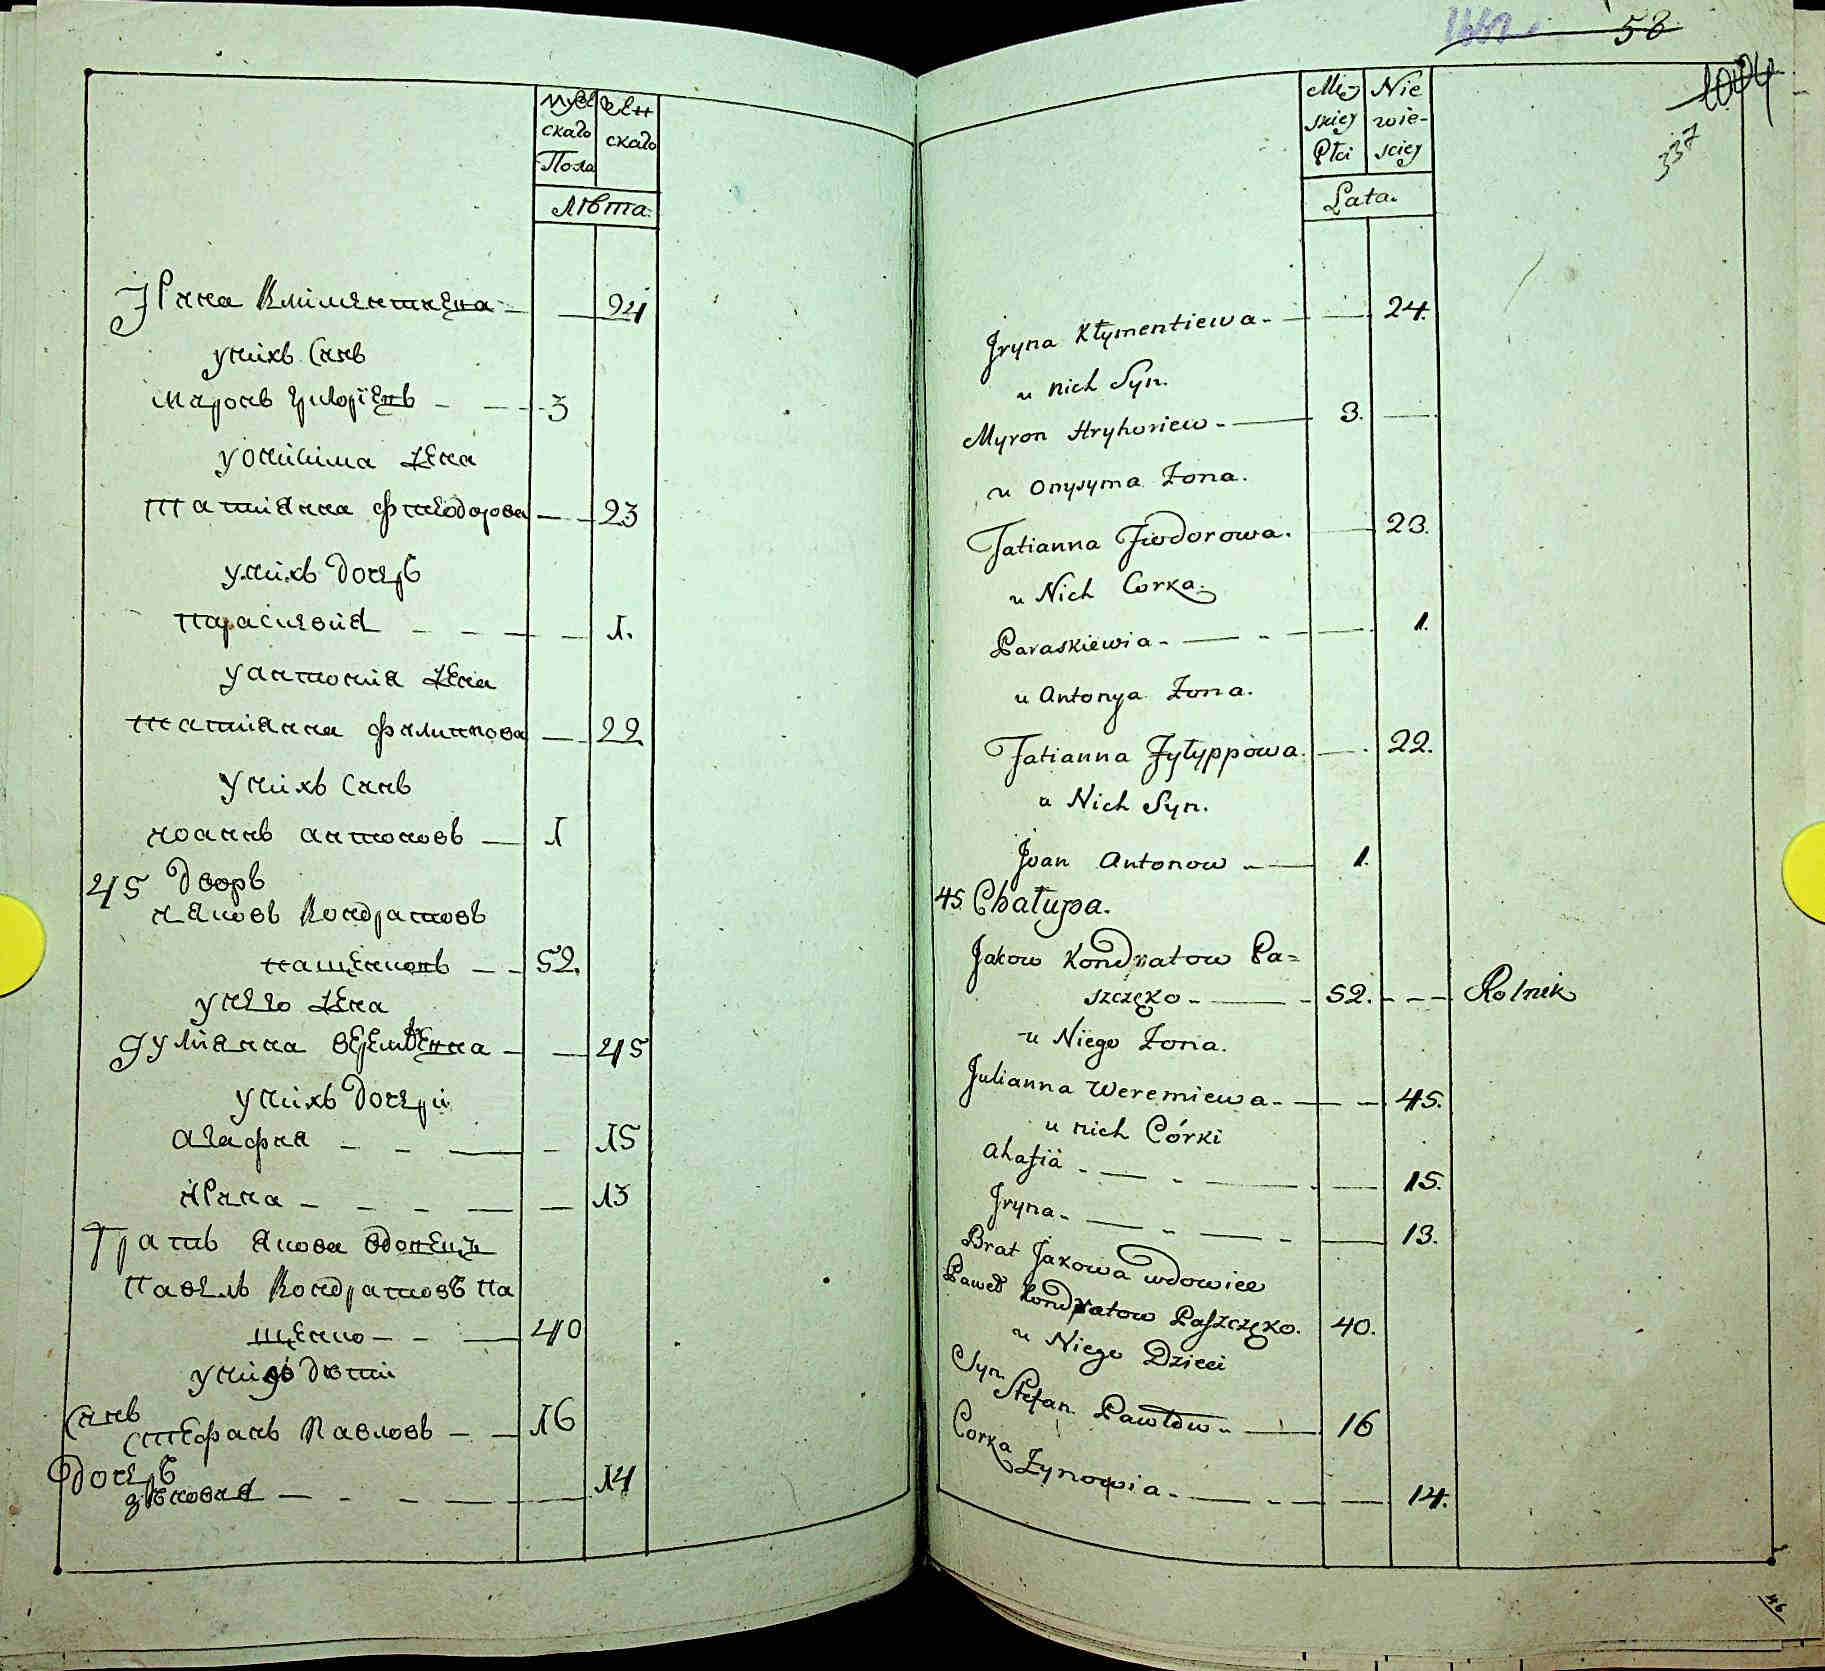 Мужескаго Пола
Женскаго
Лѣта.
Ирина Климентиева 24
у нихъ Синъ
Миронъ Григоріевъ 3
у Онисима Жена
Татіянна Фтеодорова 23
у нихъ Дочерь
Параскевия 1.
у Антонія Жена
Татіянна Филиппова 22
у нихъ Синъ
Иоаннъ Антоновъ 1
45 Дворъ
Иаковъ Кондратовъ
Пащенковъ 52.
у него Жена
Иулиянна Веремѣевна 45
у нихъ Дочери
Агафия 15
Ирина 13
Братъ Якова вдовецъ
Павелъ Кондратовъ Па
щенко 40
Дѣти
Синъ
Стефанъ Павловъ 16
Дочерь
Зѣновия 14
58
1004
337
Męzkiey Płci
Niewieściey
Lata.
Jryna Kłymentiewa 24.
u nich Syn.
Myron Hryhoriew 3.
u Onysyma Żona.
Tatianna Fiodorowa. 23.
u Nich Corka.
Paraskiewia 1.
u Antonya Żona.
Tatianna Fyłyppowa. 22.
u Nich Syn.
Joan Antonow 1.
45 Chałupa.
Jakow Kondratow Pa=
szczęko 52. Rolnik
u Niego Żona.
Julianna Weremiewa 45.
u nich Córki
Ahafia 15.
Jryna 13.
Brat Jakowa wdowiec
Paweł Kondratow Paszczęko. 40.
u Niego Dzieci
Syn
Stefan Pawłow 16
Corka
Zynowia 14.
46